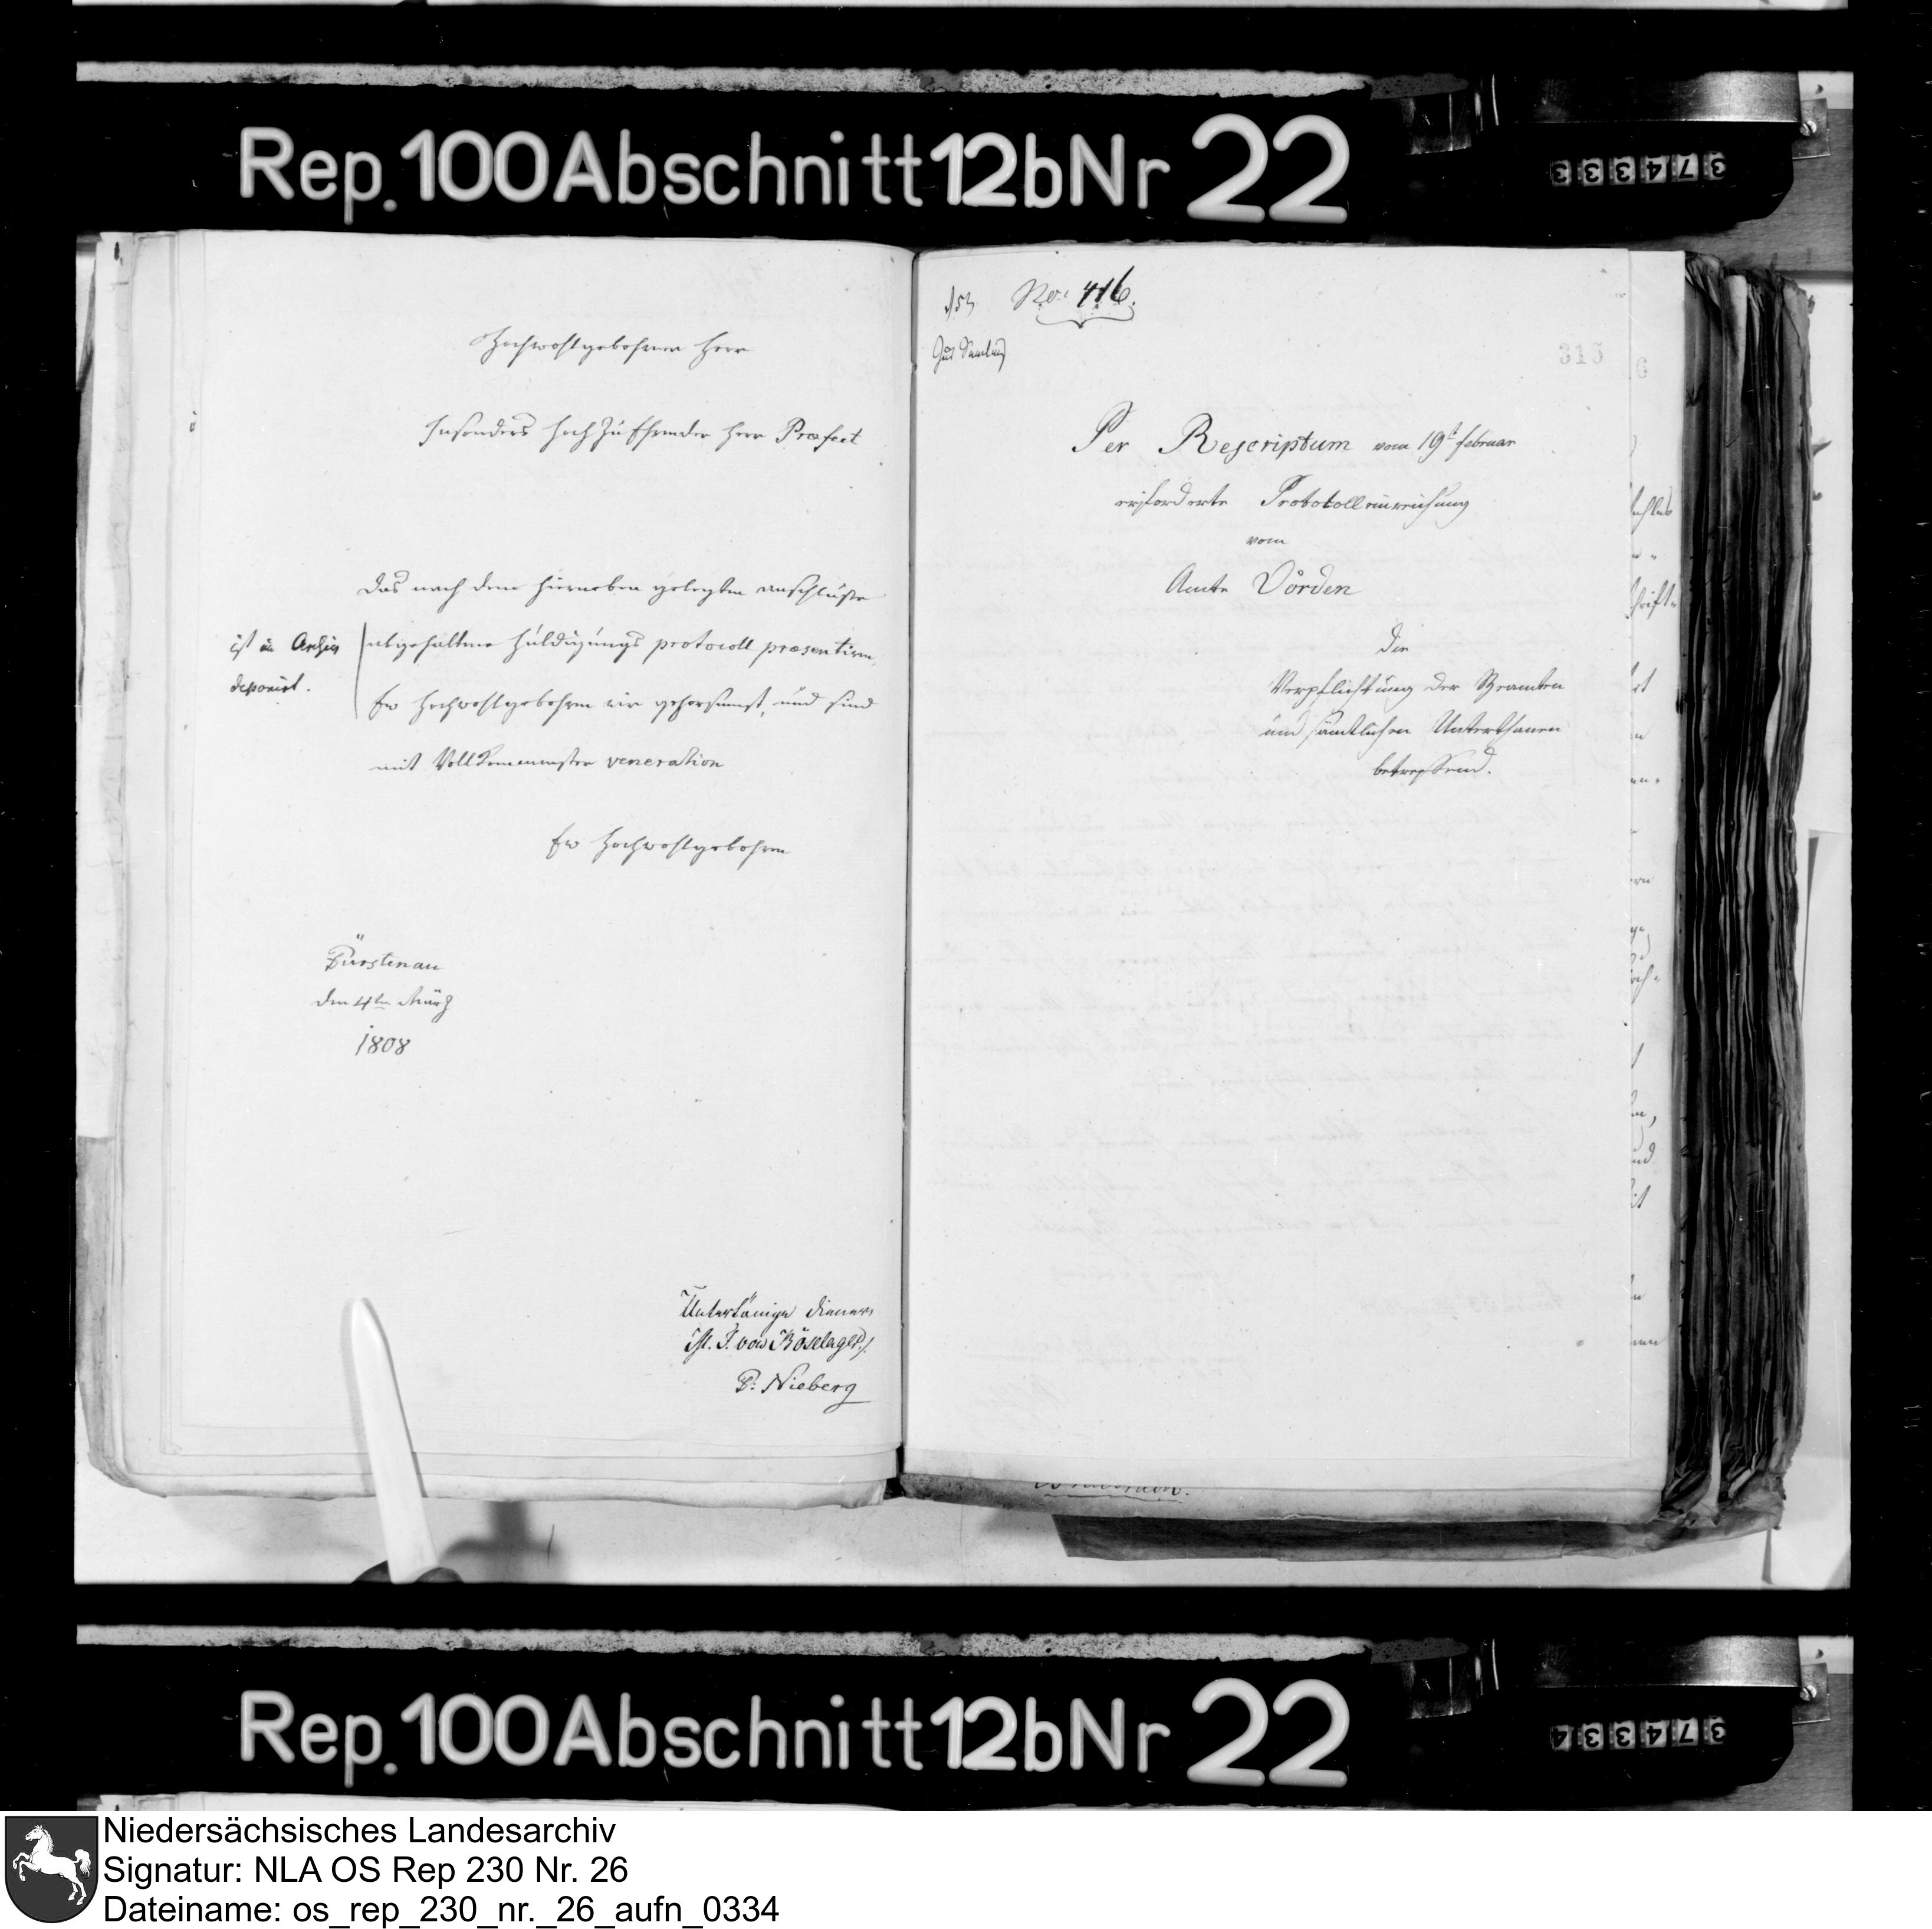 Rep. 100 Abschnitt 12b Nr 22
374333
Hochwohlgebohrner Herr
Insonders hochzuEhrender Herr Præfect
das nach dem hierneben gelegten anschluße
abgehaltene Huldigungs protocoll præsentiren
Ew Hochwohlgebohren wir gehorsamst, und sind
mit Vollkommenster veneration
ist in Archiv
deponirt.
Ew Hochwohlgebohren
Fürstenau
den 4ten März
1808
Untertänige diener
von Böselager
Nieberg
No. 416.
315
Per Rescriptum vom 19t februar
erforderte Protokolleinreichung
vom
Amte Vörden
die
Verpflichtung der Beamten
und sämtlichen Unterthanen
betreffend.
6
Rep. 100 Abschnitt 12b Nr 22
374334
Niedersächsisches Landesarchiv
Signatur: NLA OS Rep 230 Nr. 26
Dateiname: os_rep_230_nr._26_aufn_0334